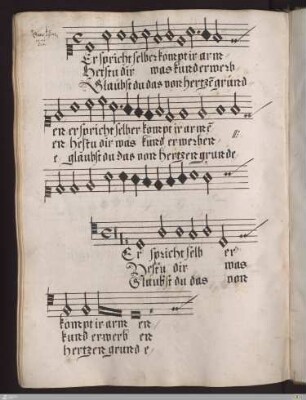 Er spricht selber kompt ir arm
Hestu dir was kund erwerb
Glaubst du das von hertzē grund
en er spricht selber kompt ir armē
en Hestu dir was kund erwerben
e glaubst du das von hertzen grunde
Er spricht selb er
Hestu dir was
Glaubst du das von
kompt ir arm en
kund erwerb en
hertzen grund e